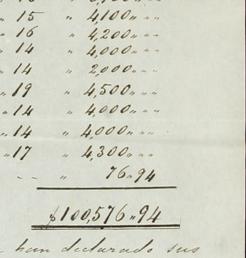 " 15 " 4,100 " " "
" 16 " 4,200 " " "
" 14 " 4,000 " " "
" 14 " 2,000 " " "
" 19 " 4,500 " " "
" 14 " 4,000 " " "
" 14 " 4,000 " " "
" 17 " 4,300 " " "
" " " 76 " 94
$100,576 " 94
han declarado sus